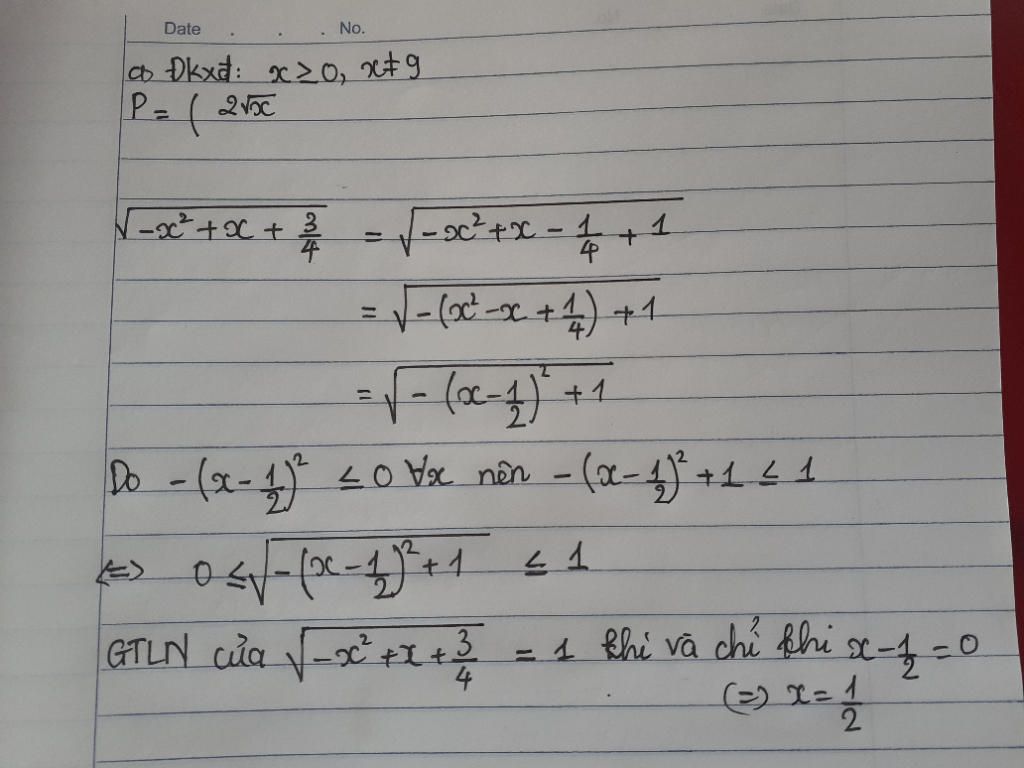 Date . . . No.
a) Đkxđ: x ≥ 0, x ≠ 9
P = ( 2√x
√(-x² + x + 3/4) = √(-x² + x - 1/4 + 1)
= √(-(x² - x + 1/4) + 1)
= √(-(x - 1/2)² + 1)
Do -(x - 1/2)² ≤ 0 ∀x nên -(x - 1/2)² + 1 ≤ 1
<=> 0 ≤ √(-(x - 1/2)² + 1) ≤ 1
GTLN của √(-x² + x + 3/4) = 1 khi và chỉ khi x - 1/2 = 0
(=) x = 1/2